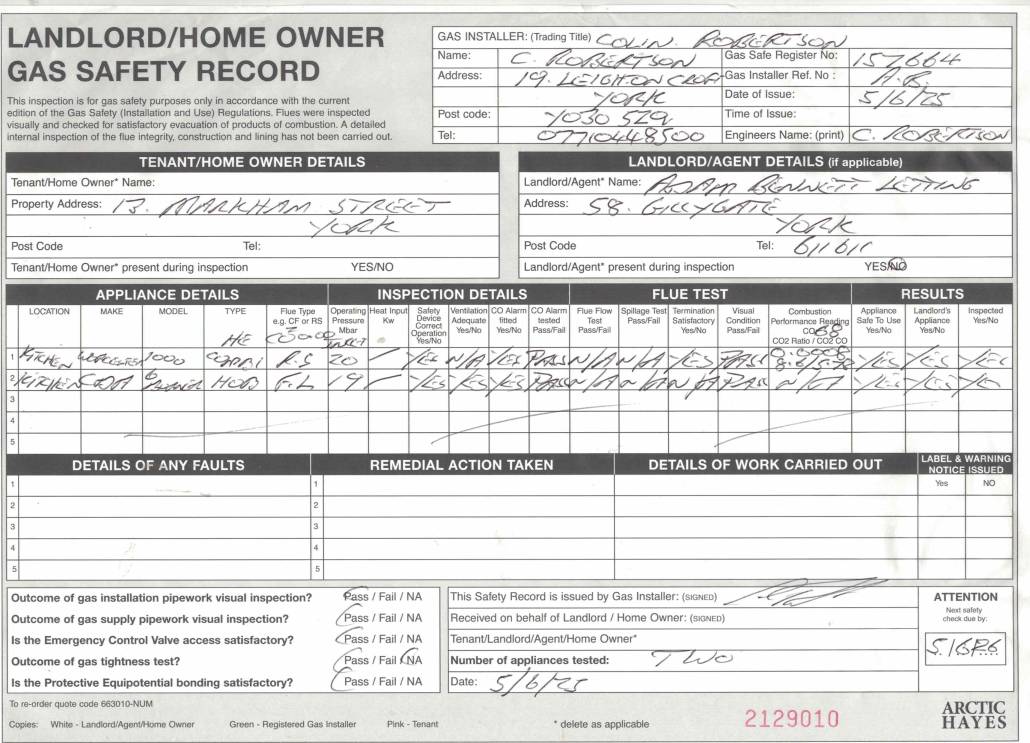 LANDLORD/HOME OWNER
GAS SAFETY RECORD
This inspection is for gas safety purposes only in accordance with the current
edition of the Gas Safety (Installation and Use) Regulations. Flues were inspected
visually and checked for satisfactory evacuation of products of combustion. A detailed
internal inspection of the flue integrity, construction and lining has not been carried out.
GAS INSTALLER: (Trading Title) COLIN. ROBERTSON
Name: C. ROBERTSON Gas Safe Register No: 157664
Address: 19. LEIGHTON CROFT Gas Installer Ref. No : A.B.
YORK Date of Issue: 5/6/25
Post code: YO30 5ZQ Time of Issue:
Tel: 07710448500 Engineers Name: (print) C. ROBERTSON
TENANT/HOME OWNER DETAILS
Tenant/Home Owner* Name:
Property Address: 13. MARKHAM STREET
YORK
Post Code Tel:
Tenant/Home Owner* present during inspection YES/NO
LANDLORD/AGENT DETAILS (if applicable)
Landlord/Agent* Name: ADAM BENNETT LETTING
Address: 58. GILLYGATE
YORK
Post Code Tel: 611611
Landlord/Agent* present during inspection YES/NO
APPLIANCE DETAILS INSPECTION DETAILS FLUE TEST RESULTS
LOCATION MAKE MODEL TYPE Flue Type e.g. CF or RS Operating Pressure Mbar Heat Input Kw Safety Device Correct Operation Yes/No Ventilation Adequate Yes/No CO Alarm fitted Yes/No CO Alarm tested Pass/Fail Flue Flow Test Pass/Fail Spillage Test Pass/Fail Termination Satisfactory Yes/No Visual Condition Pass/Fail Combustion Performance Reading CO2 Ratio / CO2 CO Appliance Safe To Use Yes/No Landlord's Appliance Yes/No Inspected Yes/No
HE INLET 68
1 KITCHEN WORCESTER 1000 COMBI R.S 20 YES N/A YES PASS N/A N/A YES PASS 0.0008 YES YES YES
2 KITCHEN HOB F.L 19 YES YES YES PASS N/A N/A N/A PASS N/A YES YES YES
3
4
5
DETAILS OF ANY FAULTS REMEDIAL ACTION TAKEN DETAILS OF WORK CARRIED OUT LABEL & WARNING NOTICE ISSUED
Yes NO
1 1
2 2
3 3
4 4
5 5
Outcome of gas installation pipework visual inspection? Pass / Fail / NA
Outcome of gas supply pipework visual inspection? Pass / Fail / NA
Is the Emergency Control Valve access satisfactory? Pass / Fail / NA
Outcome of gas tightness test? Pass / Fail / NA
Is the Protective Equipotential bonding satisfactory? Pass / Fail / NA
This Safety Record is issued by Gas Installer: (SIGNED)
Received on behalf of Landlord / Home Owner: (SIGNED)
Tenant/Landlord/Agent/Home Owner*
Number of appliances tested: TWO
Date: 5/6/25
ATTENTION
Next safety
check due by:
To re-order quote code 663010-NUM
Copies: White - Landlord/Agent/Home Owner Green - Registered Gas Installer Pink - Tenant
* delete as applicable
2129010
ARCTIC
HAYES